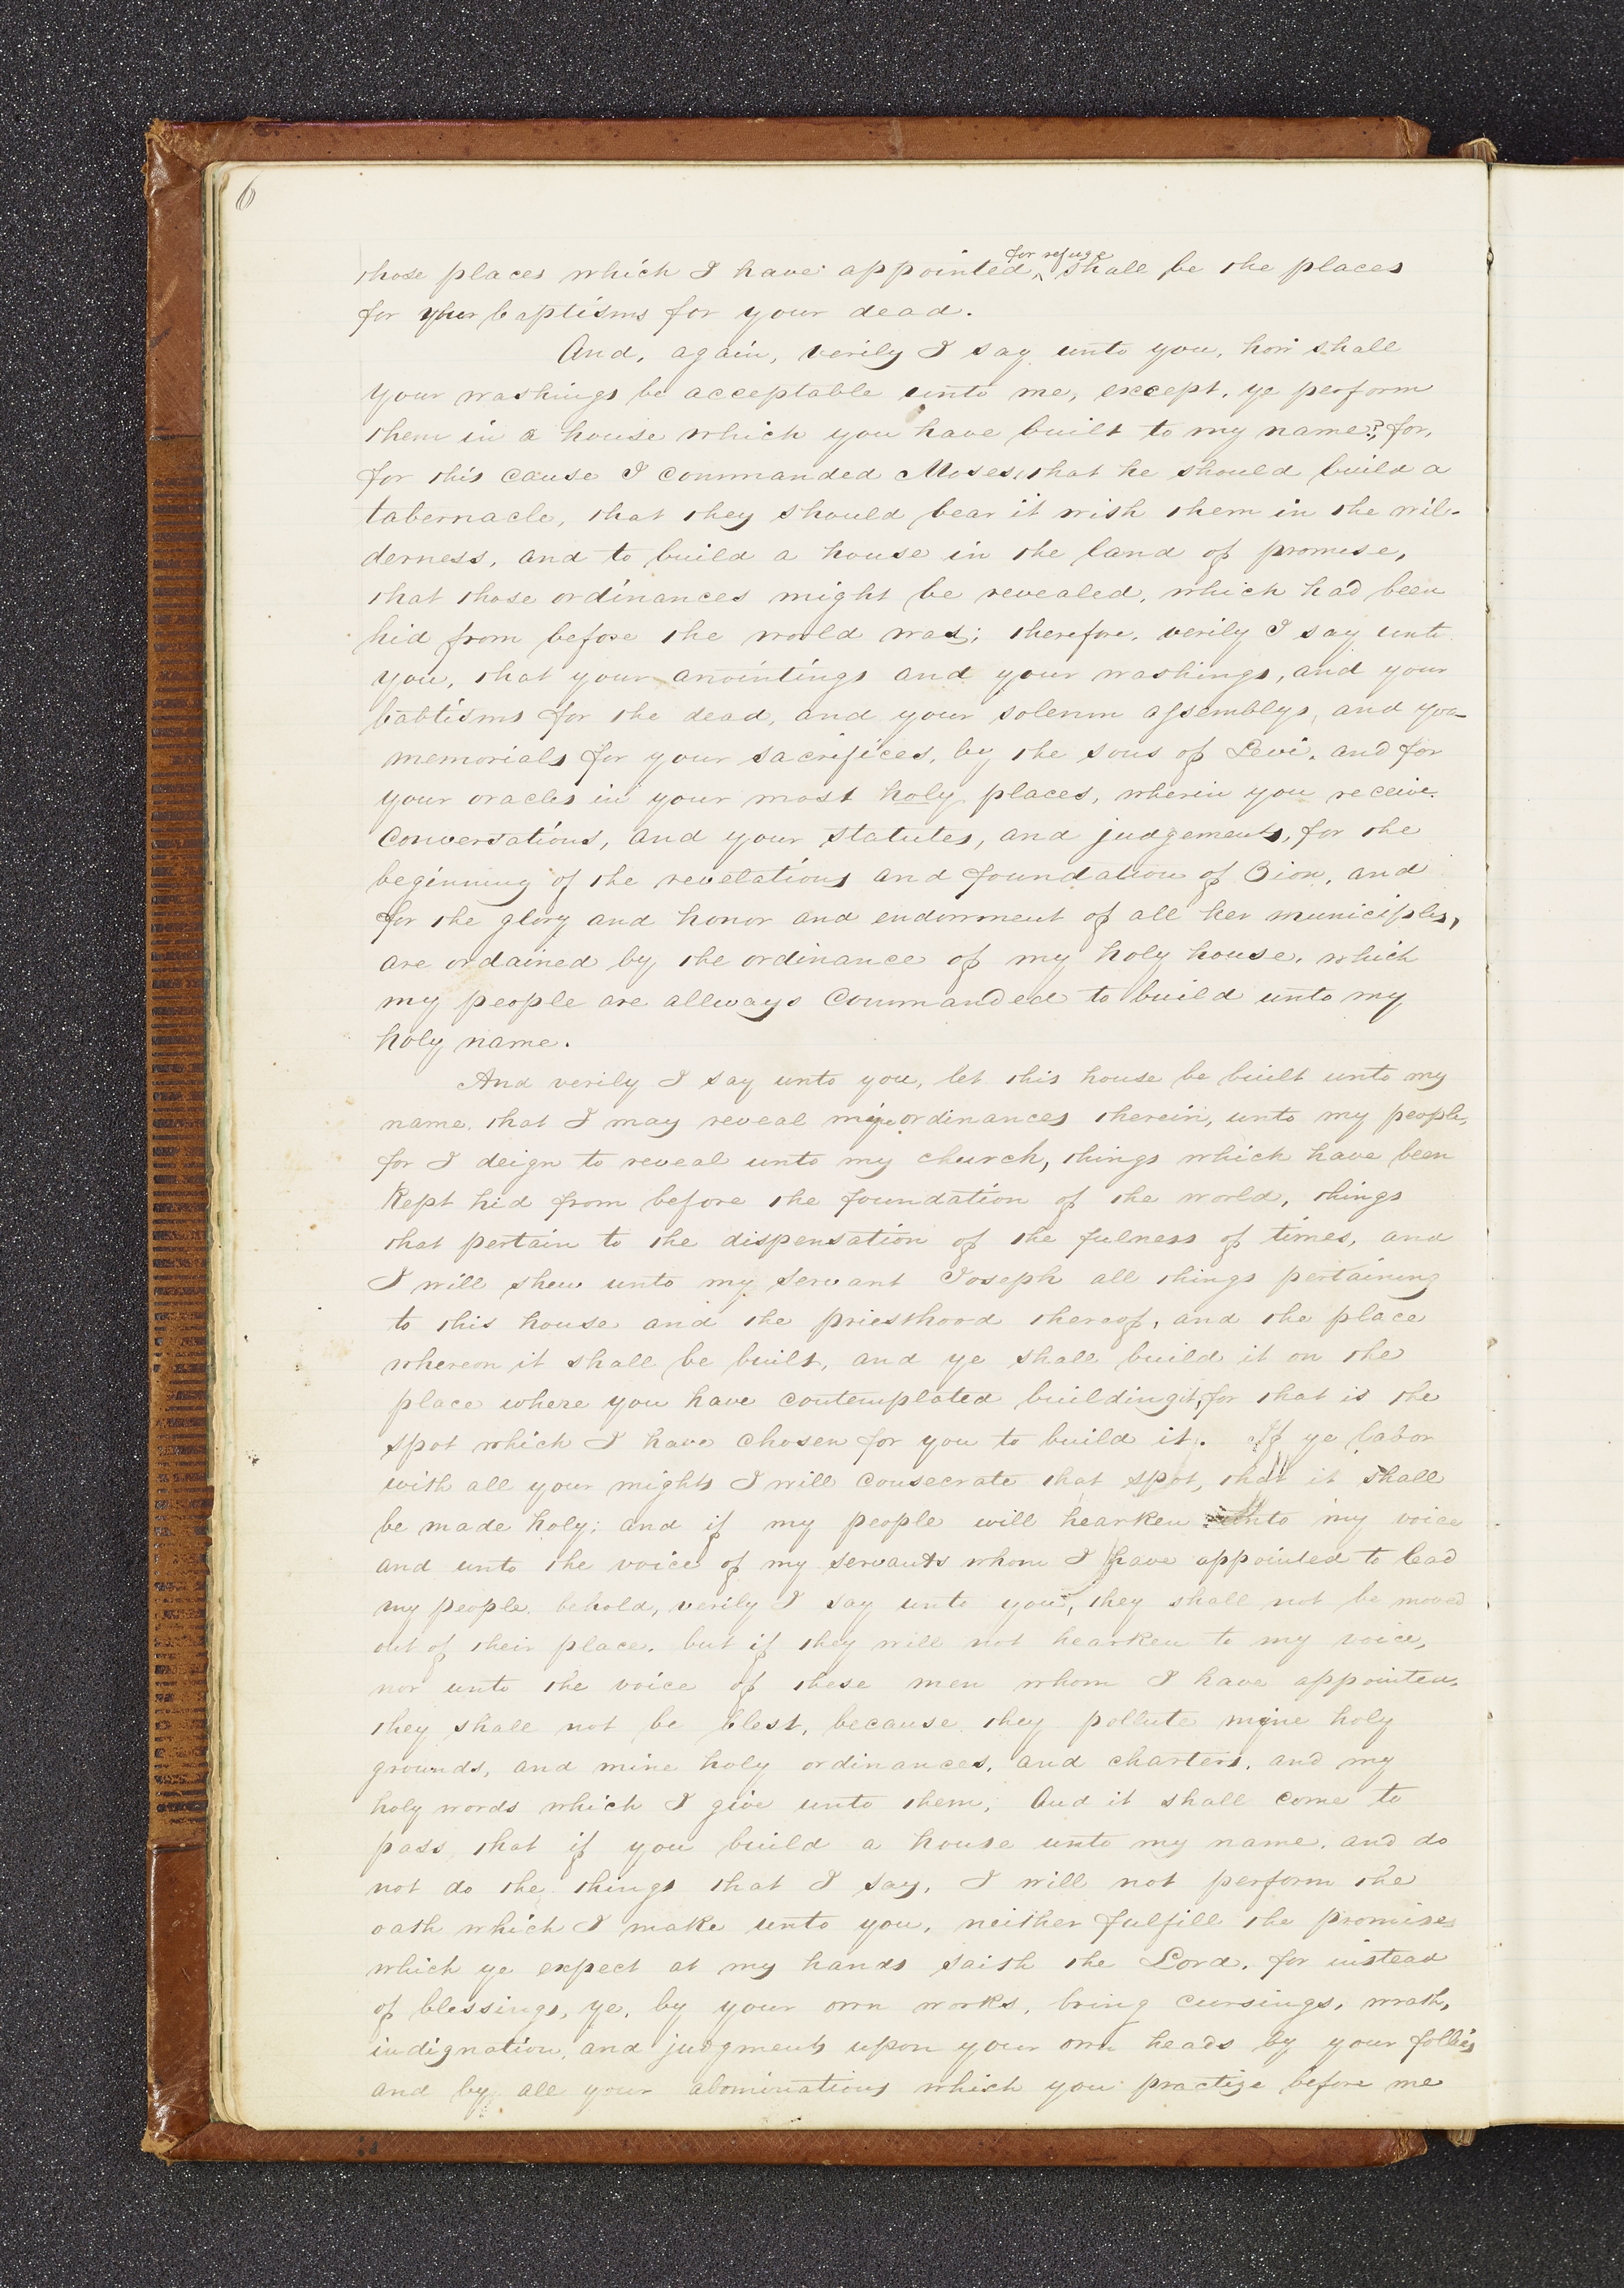 6
for refuge
those places which I have appointed, ^ shall be the places
for your baptisms for your dead.
And, again, verily I say unto you, how shall
your washings be acceptable unto me, except, ye perform
them in a house which you have built to my name?, for,
for this cause I commanded Moses, that he should build a
tabernacle, that they should bear it with them in the wil-
derness, and to build a house in the land of promise,
that those ordinances might be revealed, which had been
hid from before the world was; therefore, verily I say unto
you, that your anointings and your washings, and your
babtisms for the dead, and your solemn assemblys, and your
memorials for your sacrifices, by the sons of Levi, and for
your oracles in your most holy places, wherein you receive
conversations, and your statutes, and judgements, for the
beginning of the revelations and foundation of Zion, and
for the glory and honor and endowment of all her municiples,
are ordained by the ordinance of my holy house, which
my people are allways commanded to build unto my
holy name.
And verily I say unto you, let this house be built unto my
name, that I may reveal mine ordinances therein, unto my people,
for I deign to reveal unto my church, things which have been
Kept hid from before the foundation of the world, things
that pertain to the dispensation of the fulness of times, and
I will shew unto my servant Joseph all things pertaining
to this house and the priesthood thereof, and the place
whereon it shall be built, and ye shall build it on the
place where you have contemplated building it, for that is the
spot which I have chosen for you to build it. If ye labor
with all your mights I will consecrate that spot, that it shall
be made holy; and if my people will hearken unto my voice
and unto the voice of my servants whom I have appointed to lead
my people, behold, verily I say unto you, they shall not be moved
out of their place. but if they will not hearken to my voice,
nor unto the voice of these men whom I have appointed,
they shall not be blest, because they pollute mine holy
grounds, and mine holy ordinances, and charters, and my
holy words which I give unto them, And it shall come to
pass, that if you build a house unto my name, and do
not do the things that I say, I will not perform the
oath which I make unto you, neither fulfill the promises
which ye expect at my hands saith the Lord, for instead
of blessings, ye, by your own works, bring cursings, wrath,
indignation, and judgments upon your own heads by your follies
and by all your abominations which you practize before me